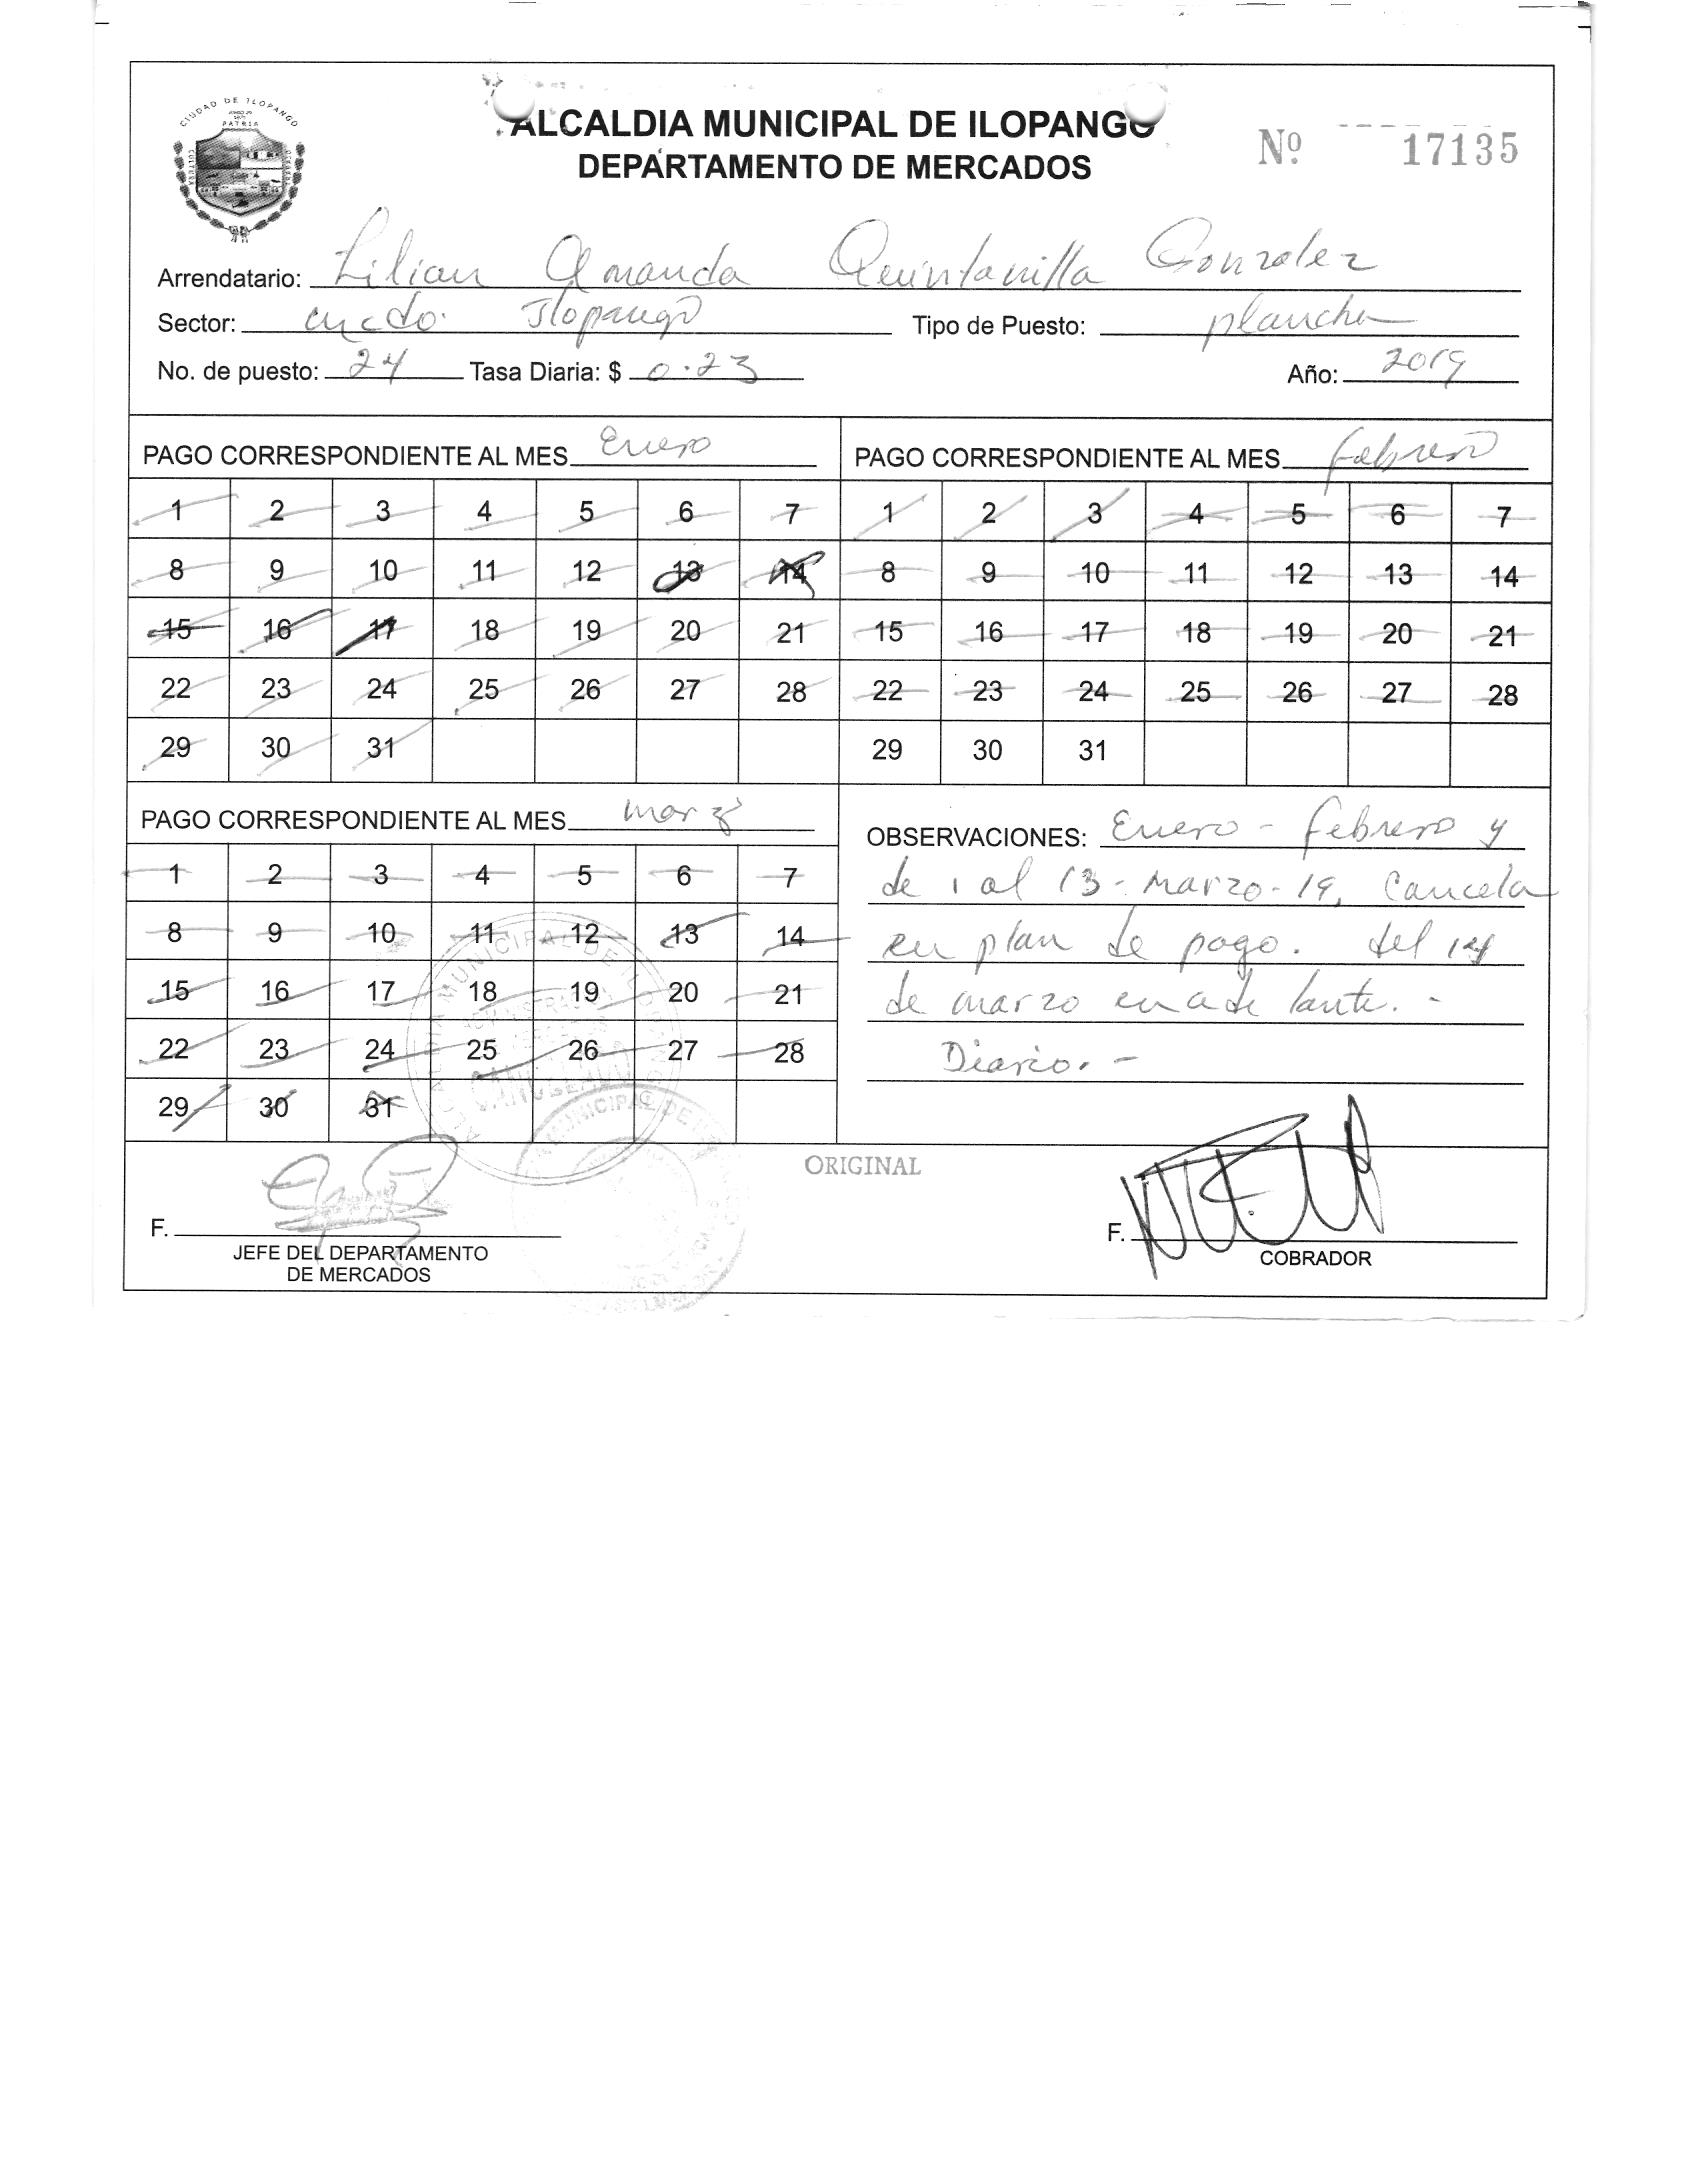 CIUDAD DE ILOPANGO
PATRIA
ALCALDIA MUNICIPAL DE ILOPANGO
DEPARTAMENTO DE MERCADOS
Nº. 17135
Arrendatario: Lilian Amanda Quintanilla Gonzalez
Sector: mcdo. Ilopango Tipo de Puesto: plancha
No. de puesto: 24 Tasa Diaria: $ 0.23 Año: 2019
PAGO CORRESPONDIENTE AL MES Enero
1 2 3 4 5 6 7
8 9 10 11 12 13 14
15 16 17 18 19 20 21
22 23 24 25 26 27 28
29 30 31
PAGO CORRESPONDIENTE AL MES febrero
1 2 3 4 5 6 7
8 9 10 11 12 13 14
15 16 17 18 19 20 21
22 23 24 25 26 27 28
29 30 31
PAGO CORRESPONDIENTE AL MES marzo
1 2 3 4 5 6 7
8 9 10 11 12 13 14
15 16 17 18 19 20 21
22 23 24 25 26 27 28
29 30 31
OBSERVACIONES: Enero - febrero y
de 1 al 13 - Marzo - 19, Cancela
en plan de pago. del 14
de marzo en adelante. -
Diario. -
ORIGINAL
F.
JEFE DEL DEPARTAMENTO
DE MERCADOS
F.
COBRADOR